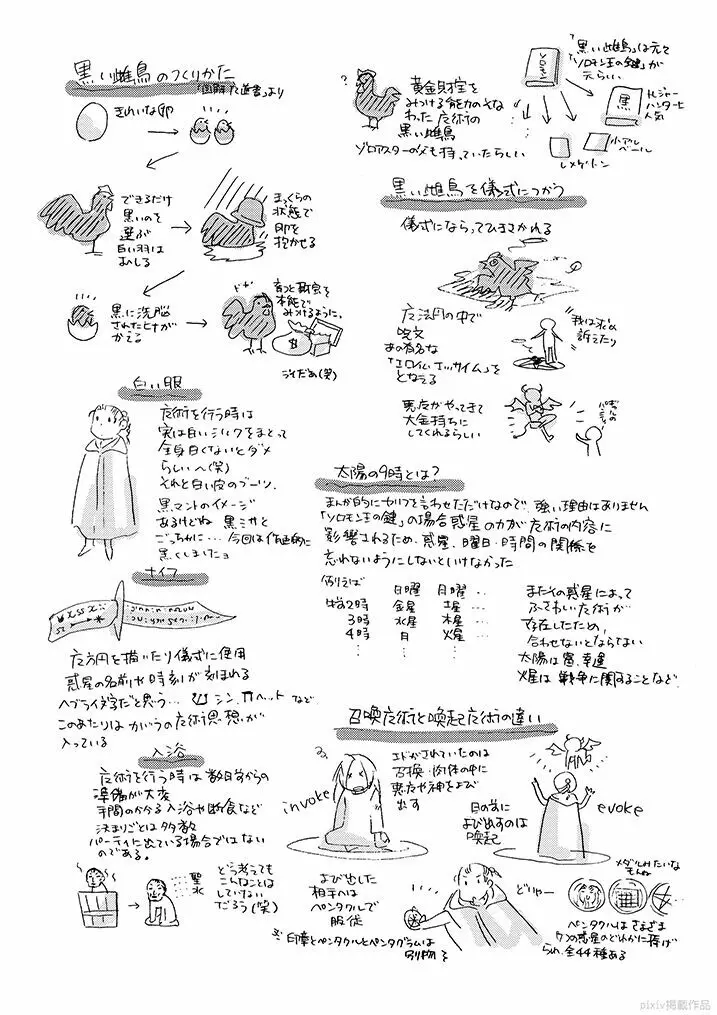 黒い雌鳥のつくりかた
きれいな卵
できるだけ
黒いのを
選ぶ
白い羽は
まっくらの
状態で
卵を
抱かせる
黒に洗脳
されたヒナが
かえる
本能で
みつけるように。
黄金財宝を
みつける能力のそな
わった魔術の
黒い雌鳥
ゾロアスターの父も持っていたらしい
「黒い雌鳥」は元々
「ソロモン王の鍵」が
元らしい
黒
トレジャー
ハンターに
人気
レメゲトン
黒い雌鳥を儀式につかう
儀式にならってひきさかれる
魔法円の中で
呪文
あの有名な
「エロイム エッサイム」を
となえる
我は求め
訴えたり
悪魔がやってきて
大金持ちに
してくれるらしい
白い服
魔術を行う時は
実は白いシルクをまとって
全身白くないとダメ
らしいへ(笑)
それと白い皮のブーツ。
黒マントのイメージ
あるけどね 黒ミサと
ごっちゃに…今回は作画的に
黒くしましたョ
太陽の9時とは?
まんが的にセリフを言わせただけなので、強い理由はありません
「ソロモン王の鍵」の場合惑星の力が魔術の内容に
影響されるため、惑星、曜日・時間の関係を
忘れないようにしないといけなかった
例えば 日曜 月曜 …
2時 金星 土星 …
3時 水星 木星 …
4時 月 火星 …
またその惑星によって
ふさわしい魔術が
存在したため、
合わせないとならない
太陽は富、幸運
火星は 戦争に関することなど。
ナイフ
魔方円を描いたり儀式に使用
惑星の名前や時刻が刻まれる
ヘブライ文字だと思う… シン、ヘットなど
このあたりはカバラの魔術思想が
入っている
入浴
魔術を行う時は 数日前からの
準備が大変
手間のかかる入浴や断食など
決まりごとは多数
パーティに出ている場合ではない
のである。
聖水
どう考えても
こんなことは
していない
だろう(笑)
召喚魔術と喚起魔術の違い
エドがされていたのは
召喚・肉体の中に
悪魔や神をよび
出す
invoke
目の前に
よび出すのは
喚起
evoke
よび出した
相手へは
ペンタクルで
服従
※印章とペンタクルとペンタグラムは
別物
どりゃー
メダルみたいな
もんね
ペンタクルはさまざま
7つの惑星のどれかに捧げ
られ、全44種ある
pixiv掲載作品